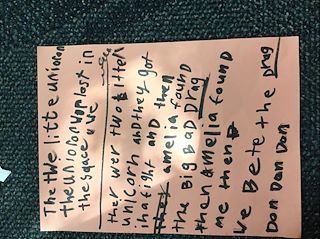 The the little unicorn
the unicorn lost in
the space
ther wer two litten
unicorn and they got
in a fight and then
Amelia found
the Big BaD Drag
then Amelia found
me then
we Bete the Drag
Don Don Don